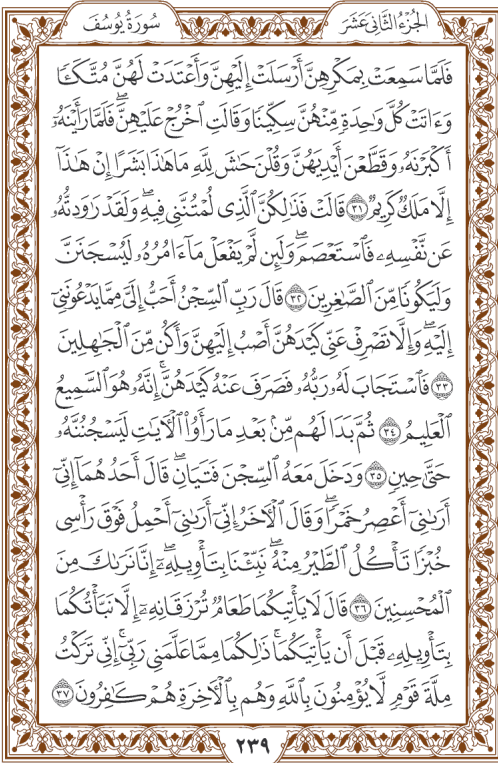 الجزء الثاني عشر
سورة يوسف
فَلَمَّا سَمِعَتْ بِمَكْرِهِنَّ أَرْسَلَتْ إِلَيْهِنَّ وَأَعْتَدَتْ لَهُنَّ مُتَّكَـًٔا
وَءَاتَتْ كُلَّ وَٰحِدَةٍ مِّنْهُنَّ سِكِّينًا وَقَالَتِ ٱخْرُجْ عَلَيْهِنَّ ۖ فَلَمَّا رَأَيْنَهُۥٓ
أَكْبَرْنَهُۥ وَقَطَّعْنَ أَيْدِيَهُنَّ وَقُلْنَ حَٰشَ لِلَّهِ مَا هَٰذَا بَشَرًا إِنْ هَٰذَآ
إِلَّا مَلَكٌ كَرِيمٌ ٣١ قَالَتْ فَذَٰلِكُنَّ ٱلَّذِى لُمْتُنَّنِى فِيهِ ۖ وَلَقَدْ رَٰوَدتُّهُۥ
عَن نَّفْسِهِۦ فَٱسْتَعْصَمَ ۖ وَلَئِن لَّمْ يَفْعَلْ مَآ ءَامُرُهُۥ لَيُسْجَنَنَّ
وَلَيَكُونًا مِّنَ ٱلصَّٰغِرِينَ ٣٢ قَالَ رَبِّ ٱلسِّجْنُ أَحَبُّ إِلَىَّ مِمَّا يَدْعُونَنِىٓ
إِلَيْهِ ۖ وَإِلَّا تَصْرِفْ عَنِّى كَيْدَهُنَّ أَصْبُ إِلَيْهِنَّ وَأَكُن مِّنَ ٱلْجَٰهِلِينَ
٣٣ فَٱسْتَجَابَ لَهُۥ رَبُّهُۥ فَصَرَفَ عَنْهُ كَيْدَهُنَّ ۚ إِنَّهُۥ هُوَ ٱلسَّمِيعُ
ٱلْعَلِيمُ ٣٤ ثُمَّ بَدَا لَهُم مِّنۢ بَعْدِ مَا رَأَوُا۟ ٱلْءَايَٰتِ لَيَسْجُنُنَّهُۥ
حَتَّىٰ حِينٍ ٣٥ وَدَخَلَ مَعَهُ ٱلسِّجْنَ فَتَيَانِ ۖ قَالَ أَحَدُهُمَآ إِنِّىٓ
أَرَىٰنِىٓ أَعْصِرُ خَمْرًا ۖ وَقَالَ ٱلْءَاخَرُ إِنِّىٓ أَرَىٰنِىٓ أَحْمِلُ فَوْقَ رَأْسِى
خُبْزًا تَأْكُلُ ٱلطَّيْرُ مِنْهُ ۖ نَبِّئْنَا بِتَأْوِيلِهِۦٓ ۖ إِنَّا نَرَىٰكَ مِنَ
ٱلْمُحْسِنِينَ ٣٦ قَالَ لَا يَأْتِيكُمَا طَعَامٌ تُرْزَقَانِهِۦٓ إِلَّا نَبَّأْتُكُمَا
بِتَأْوِيلِهِۦ قَبْلَ أَن يَأْتِيَكُمَا ۚ ذَٰلِكُمَا مِمَّا عَلَّمَنِى رَبِّىٓ ۚ إِنِّى تَرَكْتُ
مِلَّةَ قَوْمٍ لَّا يُؤْمِنُونَ بِٱللَّهِ وَهُم بِٱلْءَاخِرَةِ هُمْ كَٰفِرُونَ ٣٧
٢٣٩